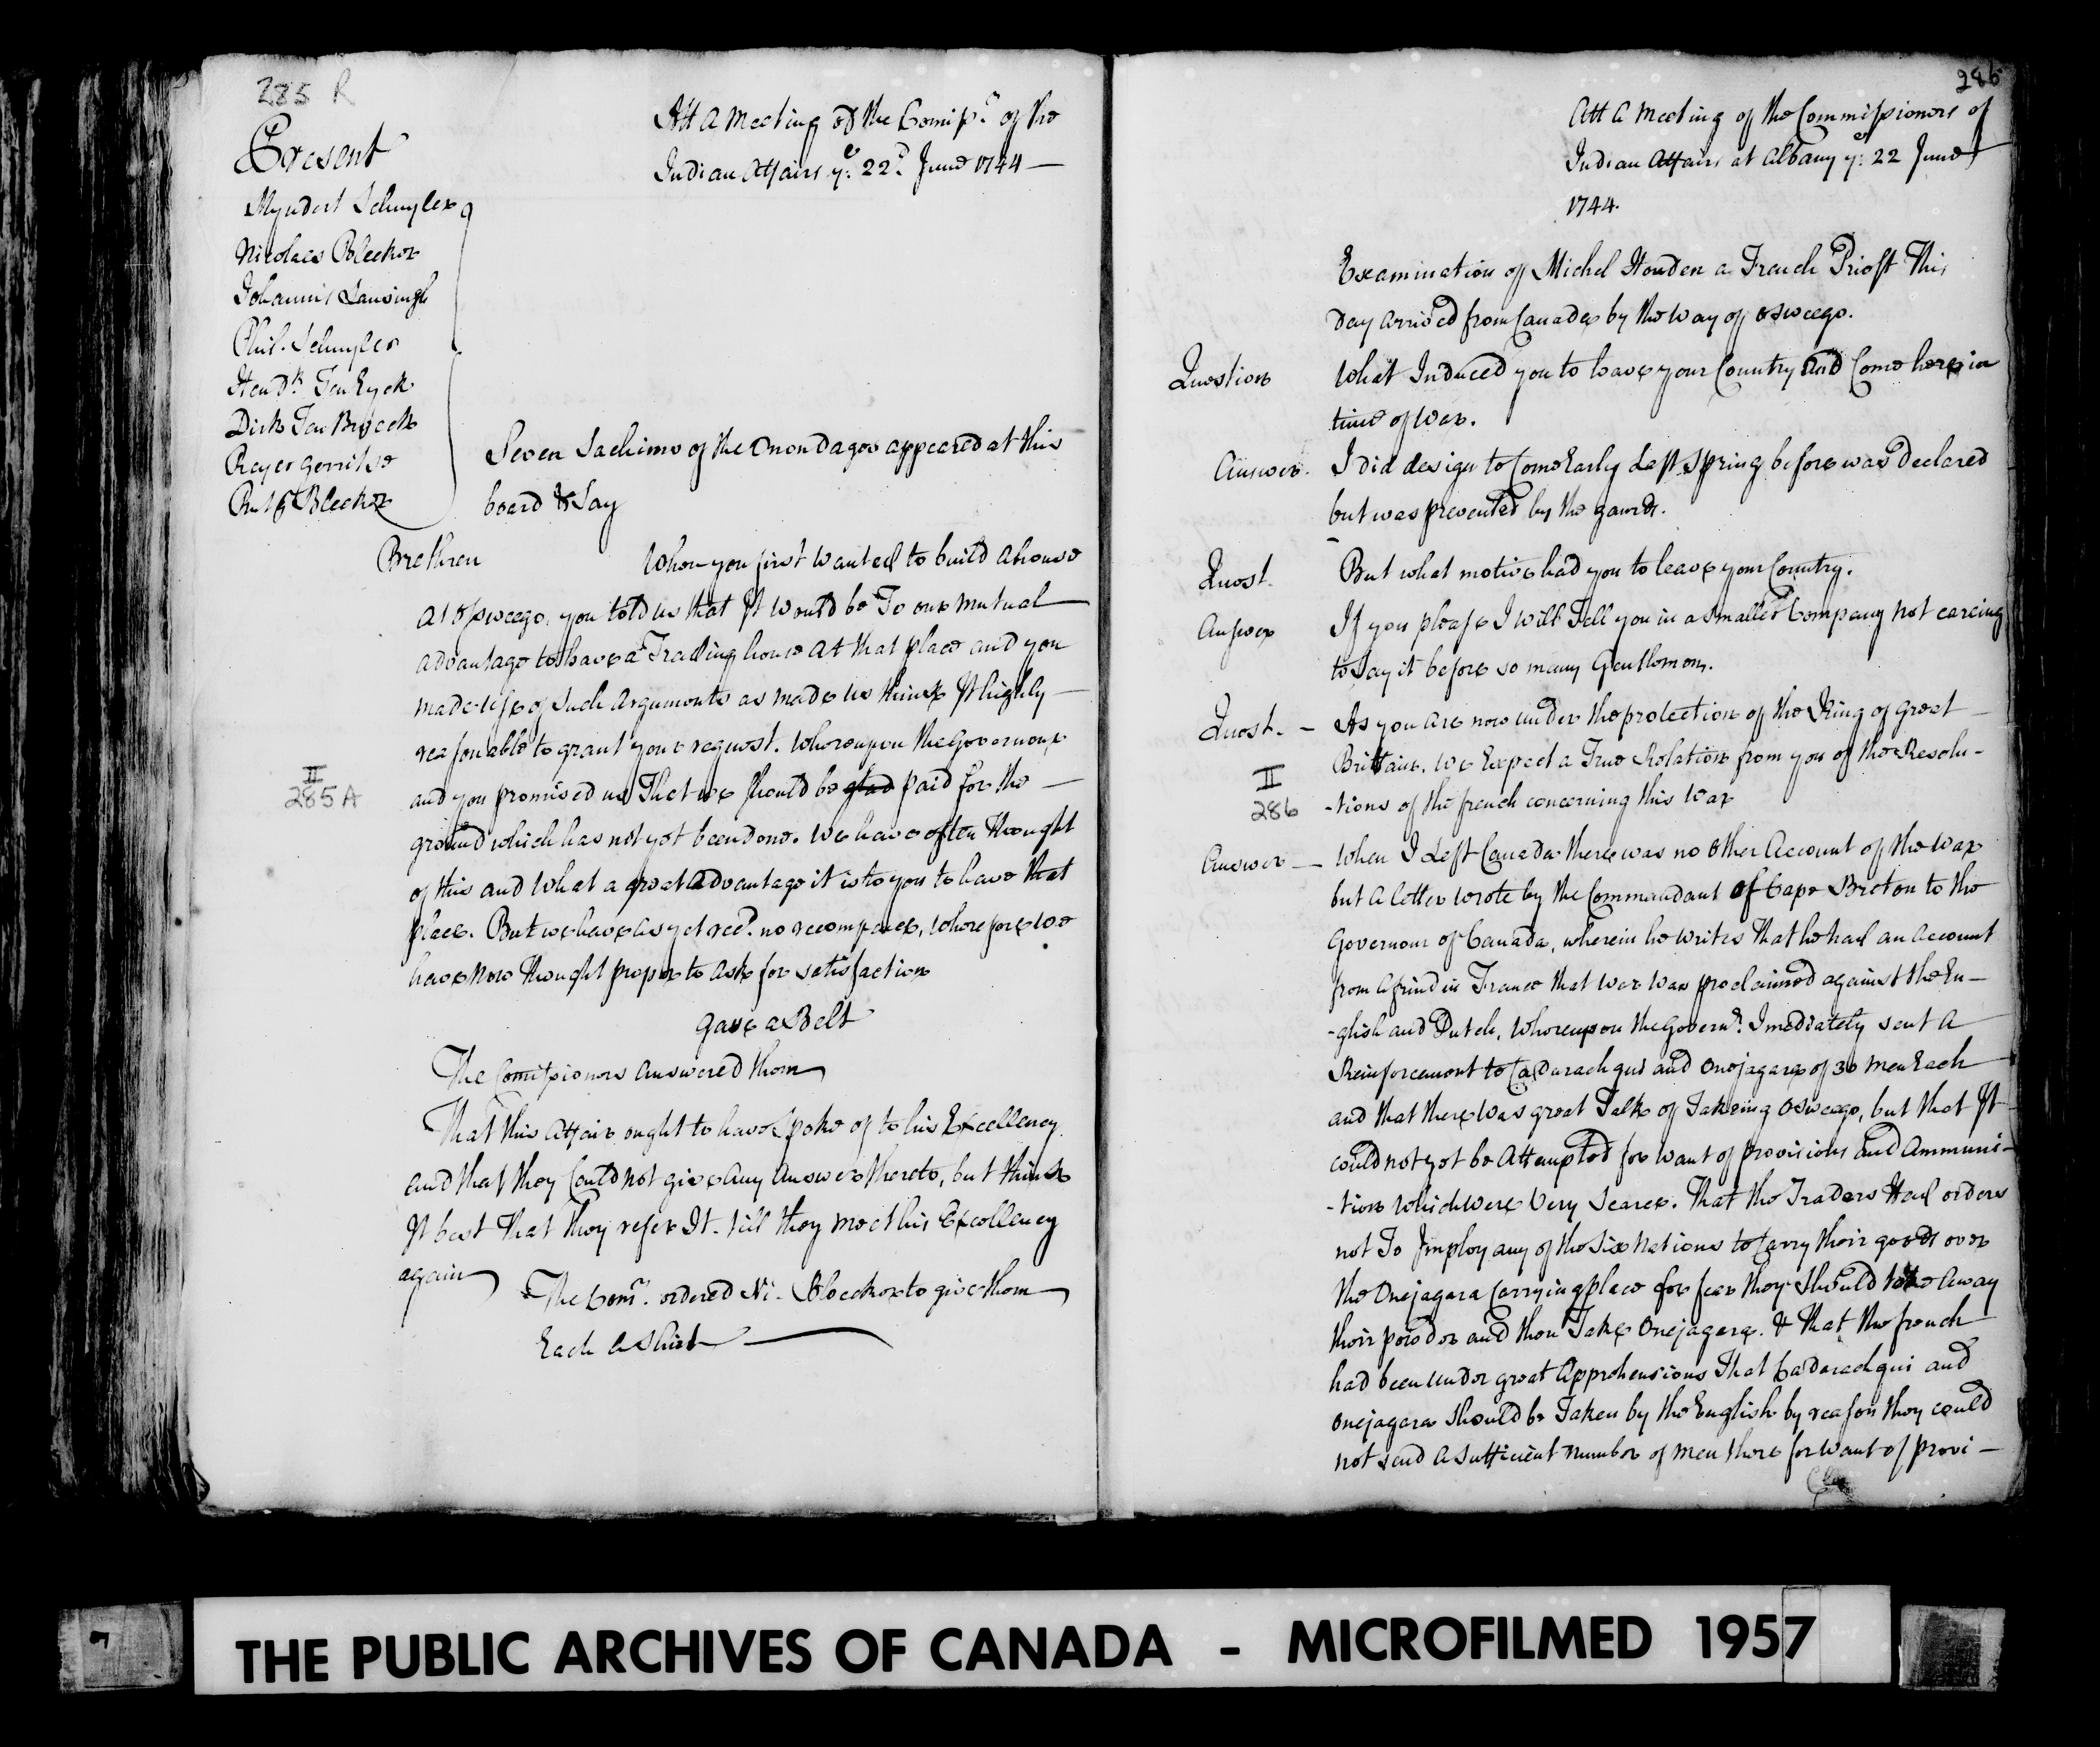 285 R
Att a Meeting of the Comissrs of the
Indian Affairs ye. 22d. June 1744 —
Present
Myndert Schuyler
Nicolaes Bleeker
Johannis Lansingh
Phil. Schuyler
Hendk. Ten Eyck
Dirk Ten Broeck
Reyer Gerritse
Rutg Bleeker
Seven Sachims of the Onondagos appeared at this
board & Say
Brethren When you first wanted to build a house
at Osweego, you told us that It would be To our mutual
advantage to have a Trading house at that place and you
made Use of Such Arguments as made us think It highly —
reasonable to grant your request. Whereupon the Governour
and you promised us That we Should be glad paid for the —
ground which has not yet been done. We have often Thought
of this and What a great advantage it is to you to have that
place. But we have as yet recd. no recompence, Wherefore we
have Now Thought proper to ask for satisfaction
Gave a Belt
The Comissioners answered them
That This Affair ought to have Spoke of to his Excellency
and that they Could not give any answer thereto, but think
It best That They refer It till they meet his Excellency
again
The Comrs. ordered Ni. Bleeker to give them
Each a Shirt
II
285 A
286
Att a Meeting of the Commissioners of
Indian Affairs at Albany ye. 22 June
1744.
Examination of Michel Houden a French Priest This
Day arrived from Canada by the Way of Osweego.
Question What Induced you to leave your Country and Come here in
time of War.
Answer. I did design to Come Early Last Spring before was Declared
but was prevented by the gaurds.
Quest. But what motive had you to leave your Country.
Answer If you please I will Tell you in a Smaller Company not careing
to Say it before so many Gentlemen.
Quest. — As you are now under the protection of the King of great
Brittain. We Expect a True Relation from you of the Resolu-
-tions of the french concerning this War
II
286
Answer — When I Left Canada there was no Other Account of the War
but a letter wrote by the Commandant of Cape Breton to the
Governour of Canada, wherein he writes That he had an account
from a frind in France that War Was proclaimed against the En-
-glish and Dutch, Whereupon the Governr. Imediately sent a
Reinforcement to Cadarachqui and Onejagara of 30 men Each
and that there Was great Talk of Takeing Osweego, but that It
could not yet be Attempted for want of provisions and Ammuni-
-tion which were Very Scarce. That the Traders Had orders
not To Imploy any of the Six Nations to Carry their goods over
the Onejagara Carrying place for fear they Should take Away
their powder and then Take Onejagara. & That the french
had been under great Apprehensions That Cadarachqui and
Onejagara Should be Taken by the English by reason they could
not send a Sufficient number of men there for want of provi —
THE PUBLIC ARCHIVES OF CANADA - MICROFILMED 1957